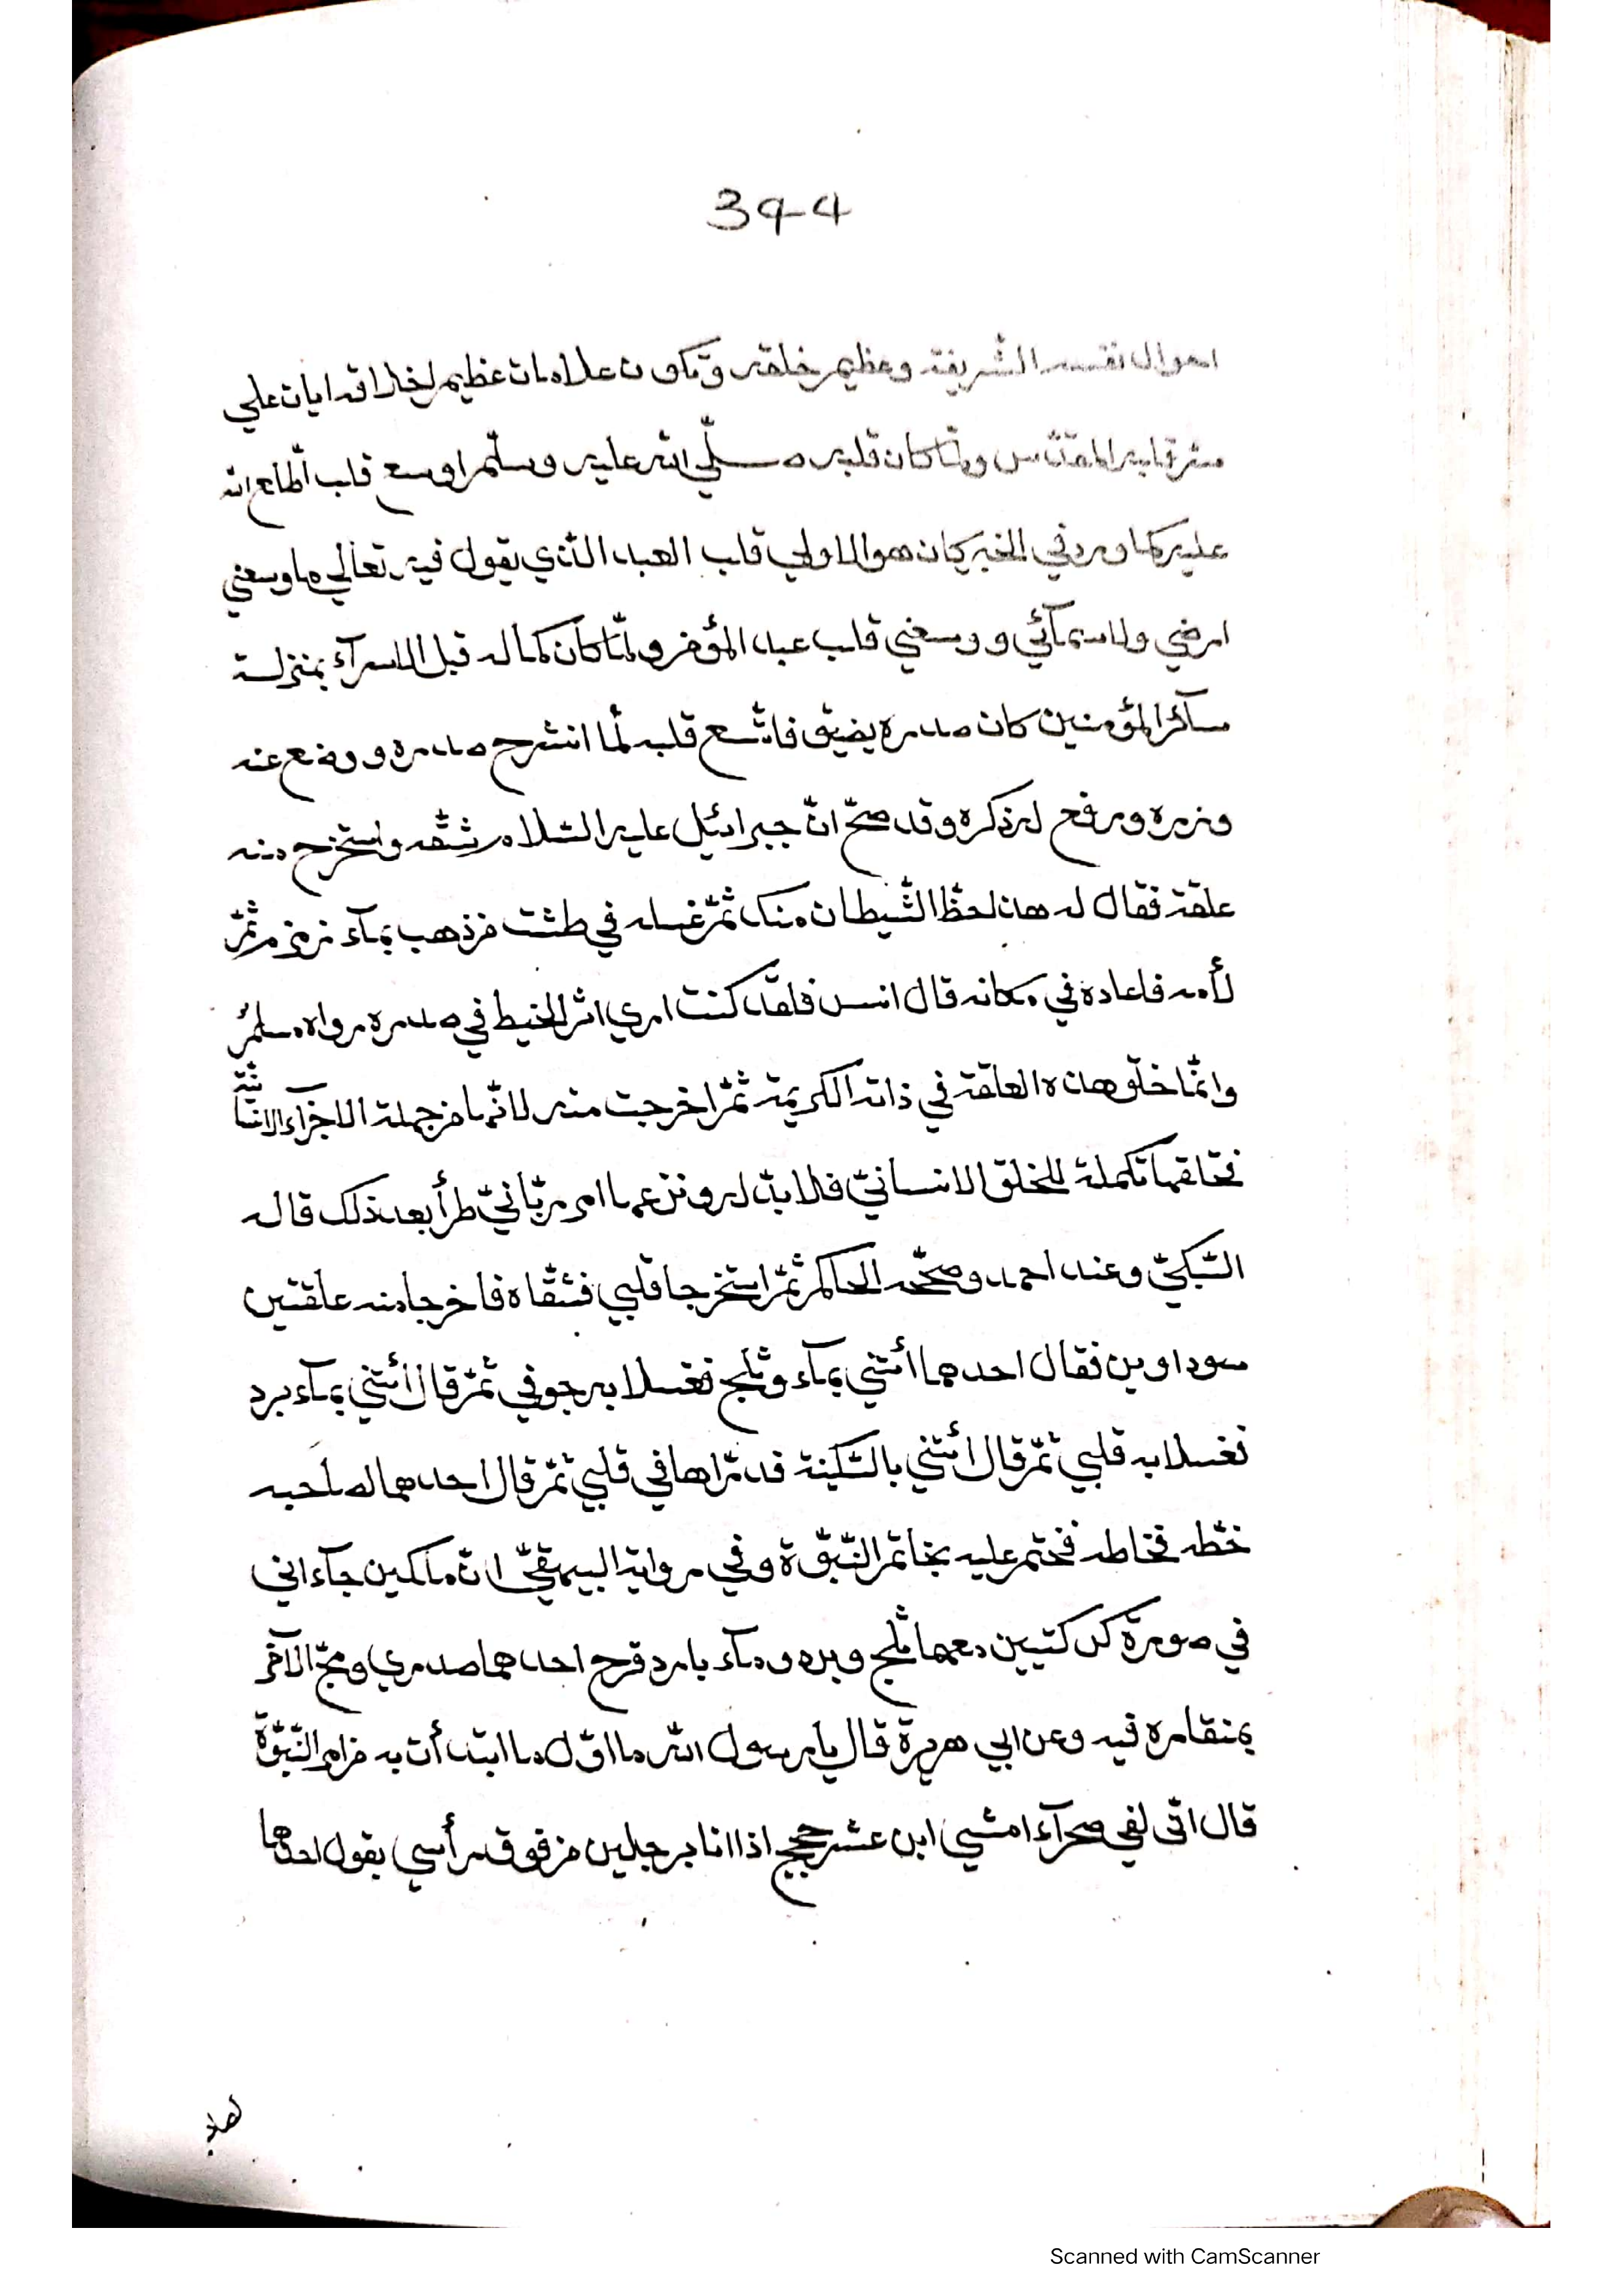 344
احوال نفسه الشريفة وعظيم خلقه وتكون علامات عظيم لخلاقه ايات علي
قلبه المقدّس ولمّا كان قلبه صلّي الله عليه وسلّم اوسع قلب اطّلع الله
عليه كما ورد في الخبر كان هو الاولي قلب العبد الّذي يقول فيه تعالي ما وسعني
ارضي ولا سمآئي ووسعني قلب عبد المؤمن ولمّا كان كماله قبل الاسرآء بمنزلة
سآئر المؤمنين كان صدره يضيق فاتّسع قلبه لمّا انشرح صدره ووضع عنه
وزره ورفع له ذكره وقد صحّ انّ جبرائيل عليه السّلام شقّه واستخرج منه
علقة فقال له هذا حظّ الشّيطان منك ثمّ غسله في طشت من ذهب بمآء زمزم ثمّ
لأمه فاعاده في مكانه قال انس فلقد كنت اري اثر الخيط في صدره رواه مسلم
وانّما خلق هذه العلقة في ذاته الكريمة ثمّ اخرجت منه لانّها من جملة الاجزآء الانسانيّة
فخلقها تكملة للخلق الانسانيّ فلا بدّ له ونزعها امر ربّانيّ طرأ بعد ذلك قاله
السّبكيّ وعند احمد وصحّحه الحاكم ثمّ استخرجا قلبي فشقّاه فاخرجا منه علقتين
سوداوين فقال احدهما أئتني بمآء وثلج فغسلا به جوفي ثمّ قال أئتني بمآء برد
فغسلا به قلبي ثمّ قال أئتني بالسّكينة فذرّاها في قلبي ثمّ قال احدهما لصاحبه
خطّه فخاطه فختم عليه بخاتم النّبوّة وفي رواية البيهقيّ انّ ملكين جآءاني
في صورة كركتيين معهما ثلج وبرد ومآء بارد فشرح احدهما صدري ومجّ الآخر
بمنقاره فيه وعن ابي هريرة قال يا رسول الله ما اوّل ما ابتدأت به من امر النّبوّة
قال انّي لفي صحرآء امشي ابن عشر حجج اذا انا برجلين من فوق رأسي يقول احدهما
Scanned with CamScanner